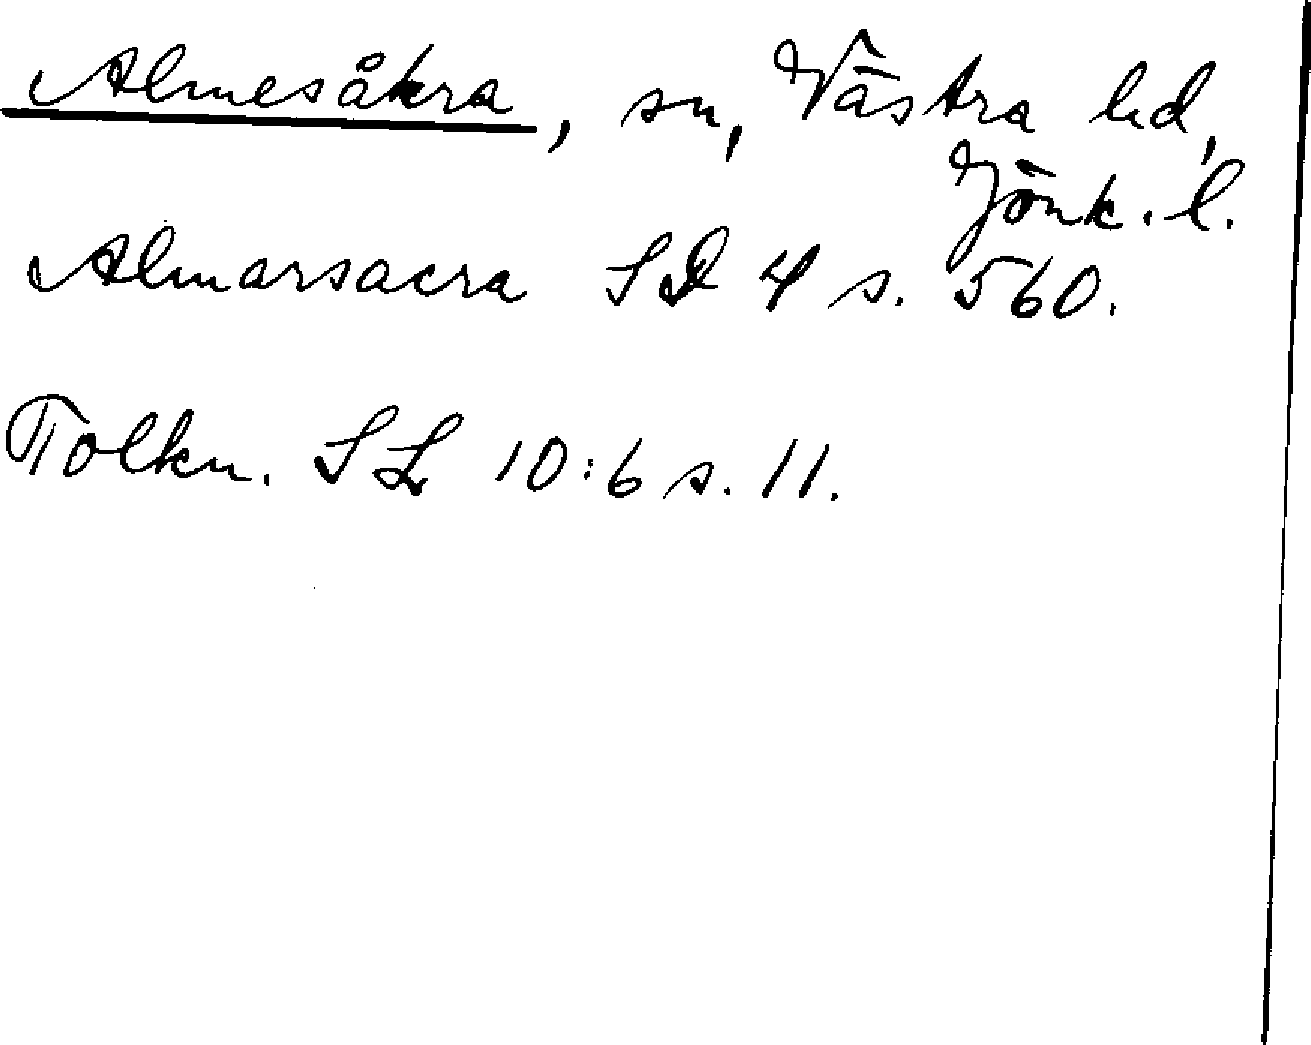 Almesåkra, sn, Västra hd,
Jönk. l.
Almarsacra SD 4 s. 560.
Tolkn. SL 10:6 s. 11.